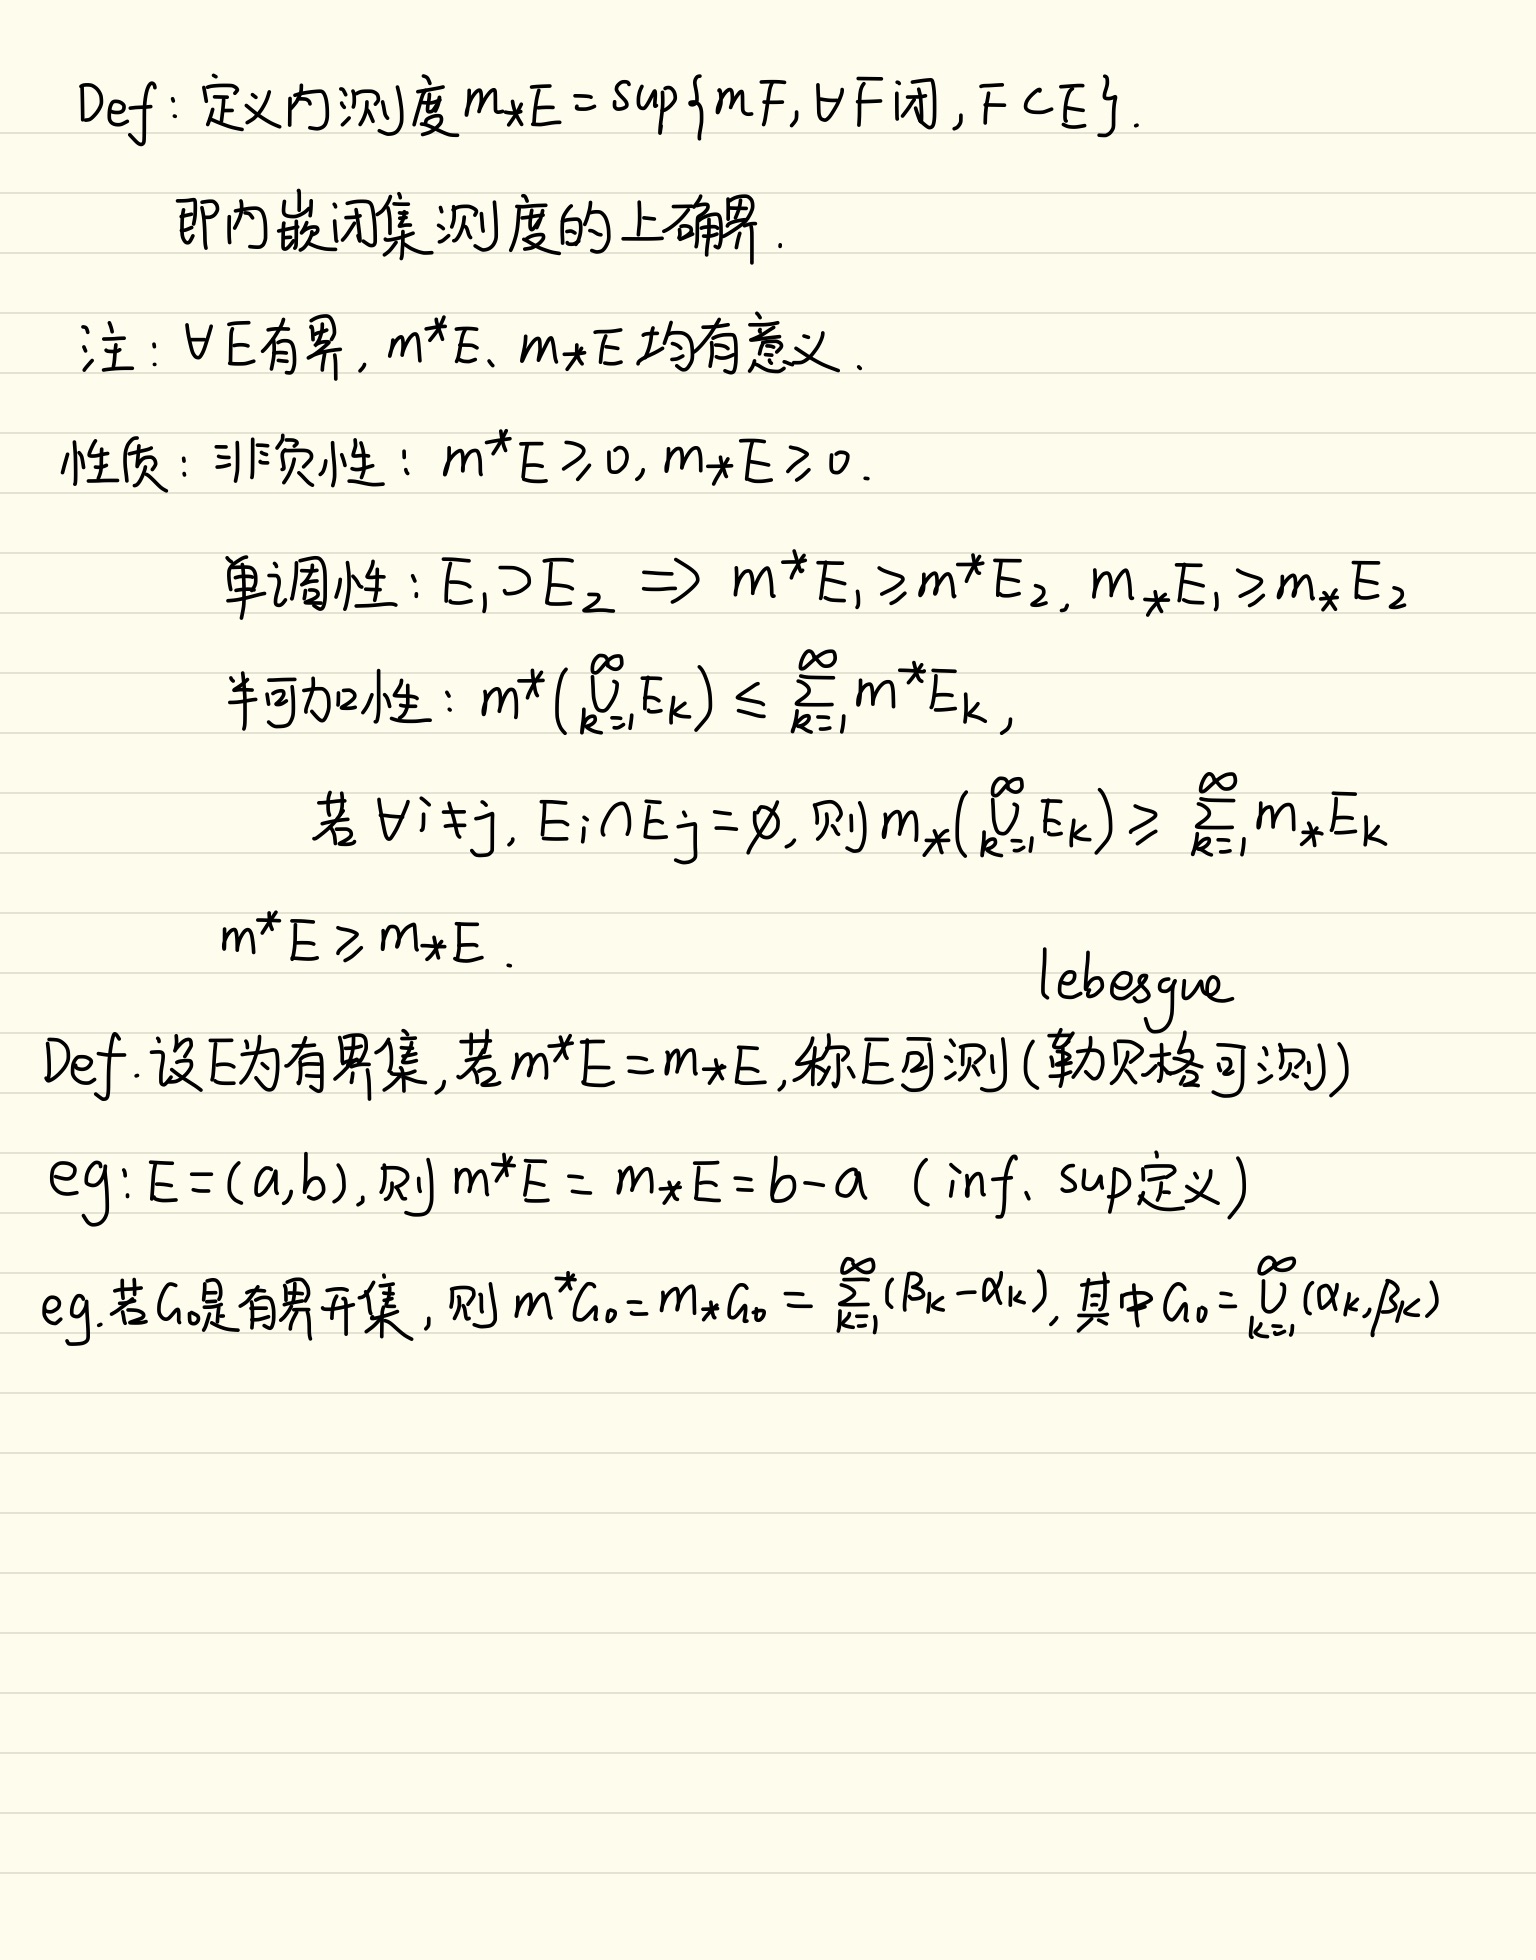 Def: 定义内测度 m_*E = sup{mF, ∀F闭, F⊂E}.
即内嵌闭集测度的上确界.
注: ∀E有界, m^*E、m_*E 均有意义.
性质: 非负性: m^*E ≥ 0, m_*E ≥ 0.
单调性: E_1⊃E_2 ⇒ m^*E_1 ≥ m^*E_2, m_*E_1 ≥ m_*E_2
半可加性: m^*(⋃_{k=1}^∞ E_k) ≤ ∑_{k=1}^∞ m^*E_k,
若 ∀i≠j, E_i∩E_j=∅, 则 m_*(⋃_{k=1}^∞ E_k) ≥ ∑_{k=1}^∞ m_*E_k
m^*E ≥ m_*E.
lebesgue
Def. 设E为有界集, 若 m^*E = m_*E, 称E可测(勒贝格可测)
eg: E=(a,b), 则 m^*E = m_*E = b-a (inf、sup定义)
eg. 若G_0是有界开集, 则 m^*G_0 = m_*G_0 = ∑_{k=1}^∞ (β_k-α_k), 其中 G_0 = ⋃_{k=1}^∞ (α_k, β_k)